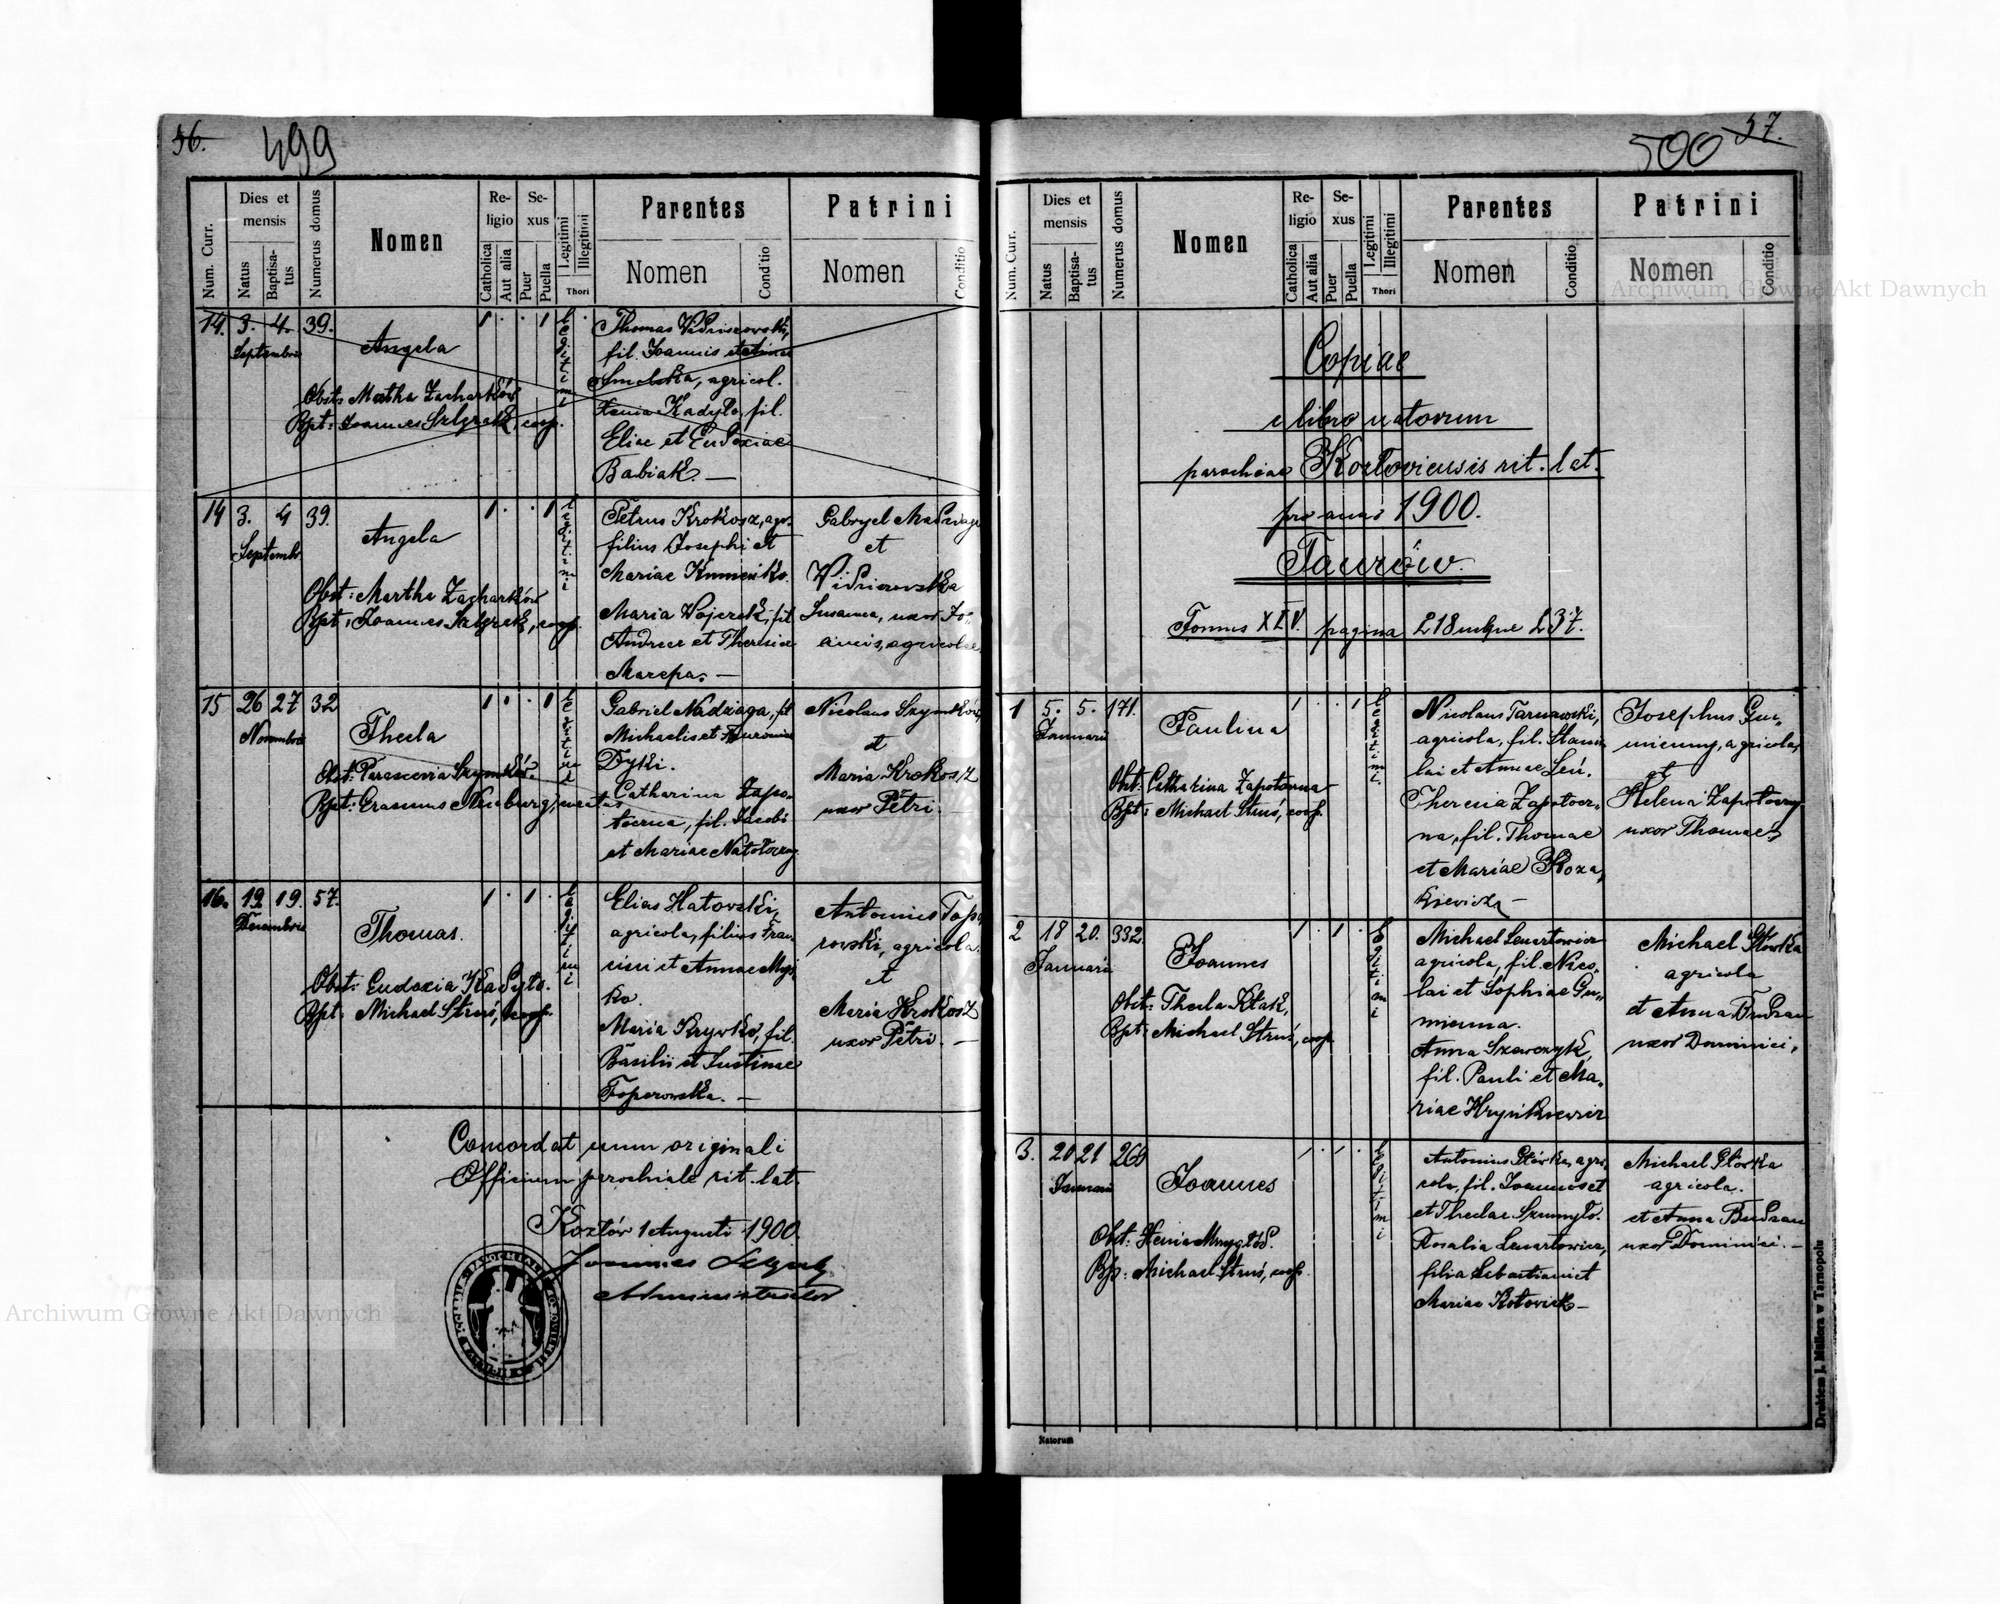 56. 499
Num. Curr. Dies et mensis Natus Baptisatus Numerus domus Nomen Religio Catholica Aut alia Sexus Puer Puella Legitimi Illegitimi Thori Parentes Nomen Conditio Patrini Nomen Conditio
14. 3. 4. 39. 1 . . 1 legitimi Thomas
Septembris Angela fil. Joannis et Annae
Smelska, agricol.
Obst: Martha Zacharków Xenia Kadyło, fil.
Bpt: Joannes Szlgrek, coop. Eliae et Eudoxiae
Babiak. —
14 3. 4 39. 1 . . 1 legitimi Petrus Krokosz, agr. Gabryel
Septembr Angela filius Josephi et et
Mariae
Obst: Martha Zacharków Maria Wojczek, fil Susanna, uxor Jo-
Bpt: Joannes Szlgrek, coop. Andreae et Theresiae annis, agricolae
Marcepa. —
15 26 27 32 1 . . 1 legitimi Gabriel Nadziaga, fil Nicolaus Szymków
Novembris Thecla Michaelis et et
Dyki. Maria Krokosz
Obst: Parascevia Szymków. Catharina Zapo- uxor Petri.
Bpt: Erasmus Neuburg, curatus toczna, fil. Jacobi
et Mariae
16. 19. 19. 57. 1 . 1 . legitimi Elias Hatovski, Antonius Topo
Decembris Thomas. agricola, filius Fran- rowski, agricola.
cisci et Annae et
Obst: Eudoxia Kadyło. ko. Maria Krokosz
Bpt: Michael Struś, coop. Maria Krywko, fil. uxor Petri. —
Basilii et Justinae
Toporowska. —
Concordat cum originali
Officium parochiale rit. lat.
Kozłów 1 Augusti 1900.
Joannes
Administrator
500 57.
Num. Curr. Dies et mensis Natus Baptisatus Numerus domus Nomen Religio Catholica Aut alia Sexus Puer Puella Legitimi Illegitimi Thori Parentes Nomen Conditio Patrini Nomen Conditio
Copiae
e libro natorum
parochiae Kozloviensis rit. lat.
pro anno 1900.
Taurów.
Tomus XIV. pagina 218 usque 237.
1 5. 5. 171. 1 . . 1 legitimi Nicolaus Tarnawski, Josephus Gu-
Januarii Paulina agricola, fil. Stanis- mienny, agricola,
lai et Annae Leń. et
Obst: Catharina Zapotoczna Theresia Zapotocz- Helena Zapotoczny
Bpt: Michael Struś, coop. na, fil. Thomae uxor Thomae
et Mariae Koza-
kiewicz —
2 18 20. 332. 1 . 1 . legitimi Michael Lenartowicz Michael Główka
Januarii Joannes agricola, fil. Nico- agricola
lai et Sophiae Gu- et Anna Budzan
Obst: Thecla Ktak, mienna. uxor Dominici.
Bpt: Michael Struś, coop. Anna Szewczyk,
fil. Pauli et Ma-
riae Hryńkiewicz
3. 20 21 260 1 . 1 . legitimi Antonius Główka, agri- Michael Główka
Januarii Joannes cola, fil. Joannis et agricola.
et Theclae Szumyło. et Anna Budzan
Obst: Xenia Rosalia Lenartowicz, uxor Dominici. —
Bp: Michael Struś, coop. filia Sebastiani et
Mariae Kotowicz —
Natorum
Drukiem J. Mullera w Tarnopolu
Archiwum Główne Akt Dawnych
Archiwum Główne Akt Dawnych